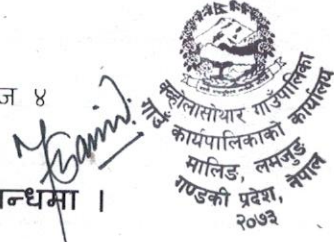 ज ४
न्धमा ।
क्व्होलासोथार गाउँपालिका
गाउँ कार्यपालिकाको कार्यालय
मालिङ, लमजुङ
गण्डकी प्रदेश, नेपाल
२०७३